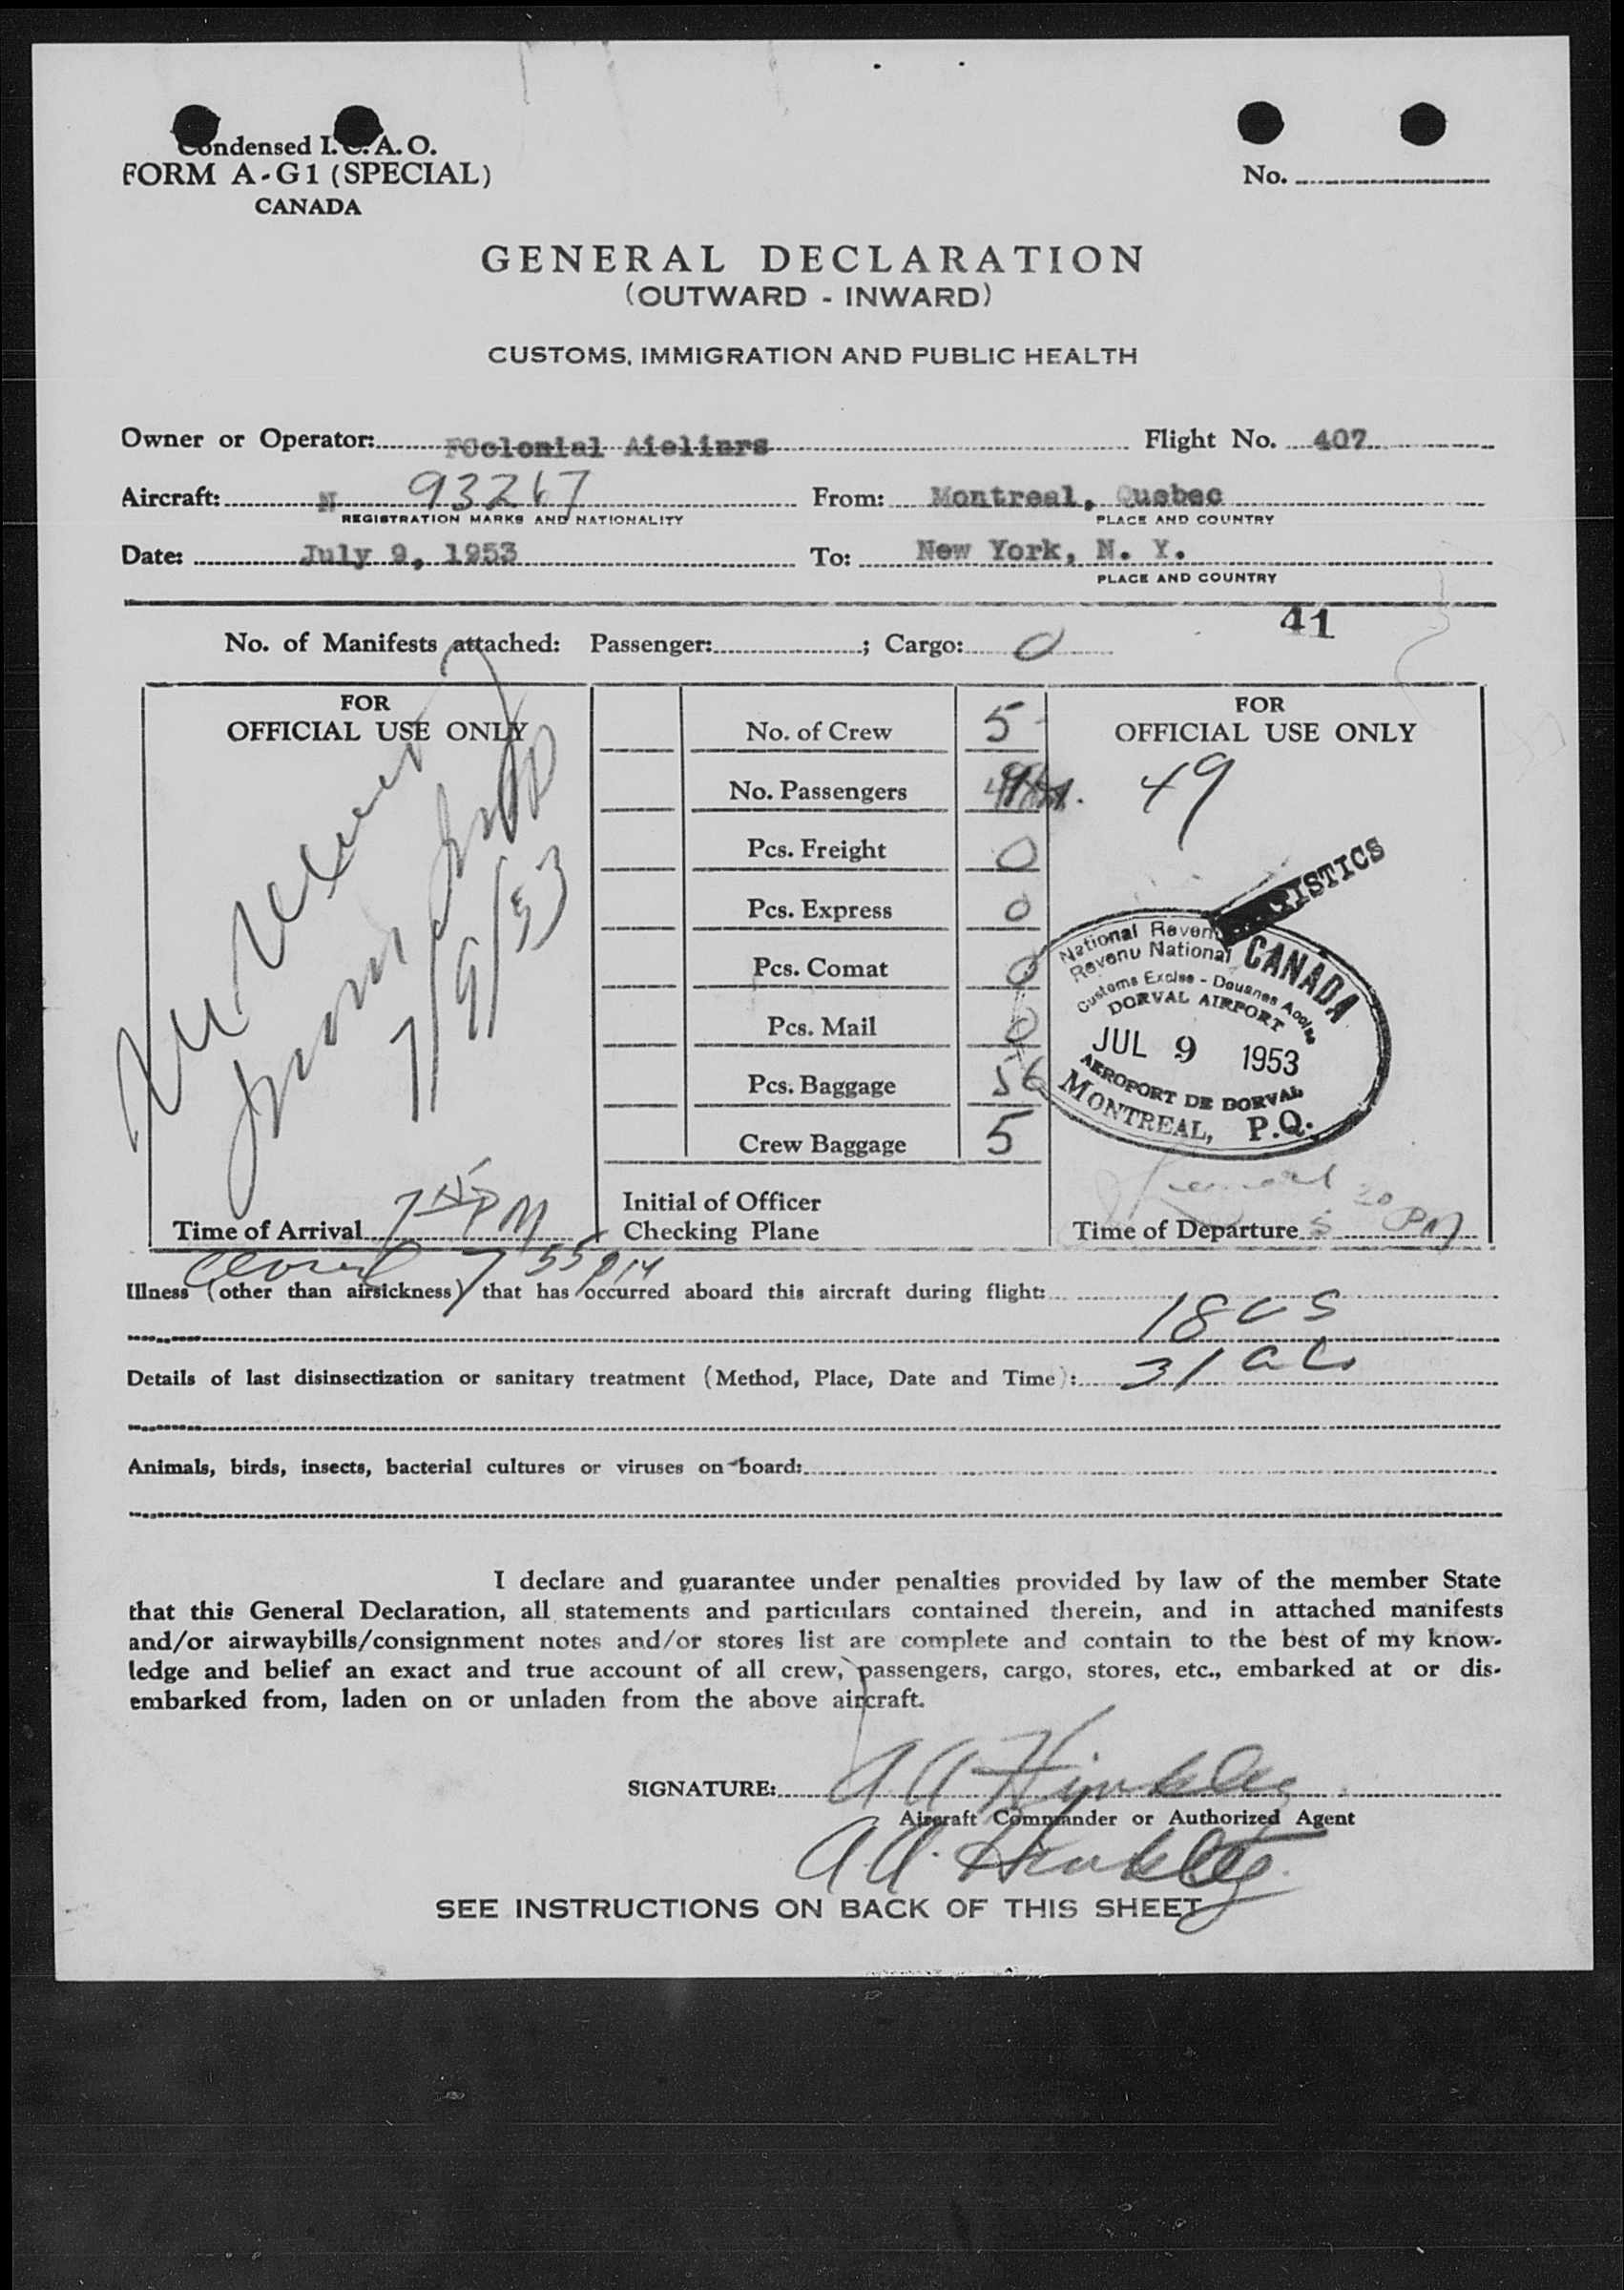 Condensed I. C. A. O.
FORM A-G1 (SPECIAL)
CANADA
No.
GENERAL DECLARATION
(OUTWARD - INWARD)
CUSTOMS, IMMIGRATION AND PUBLIC HEALTH
Owner or Operator: FColonial Aielinrs Flight No. 407
Aircraft: N 93267 From: Montreal, Quebec
REGISTRATION MARKS AND NATIONALITY PLACE AND COUNTRY
Date: July 9, 1953 To: New York, N. Y.
PLACE AND COUNTRY
41
No. of Manifests attached: Passenger: ; Cargo: 0
FOR
OFFICIAL USE ONLY
7/9/53
Time of Arrival 7 PM
No. of Crew 5
No. Passengers
Pcs. Freight 0
Pcs. Express 0
Pcs. Comat 0
Pcs. Mail 0
Pcs. Baggage 56
Crew Baggage 5
Initial of Officer
Checking Plane
FOR
OFFICIAL USE ONLY
49
National Revenu
Revenu National
CANADA
Customs Excise - Douanes Accise
DORVAL AIRPORT
JUL 9 1953
AEROPORT DE DORVAL
MONTREAL, P.Q.
Time of Departure 5 20 PM
7 55 PM
Illness (other than airsickness) that has occurred aboard this aircraft during flight:
18 US
Details of last disinsectization or sanitary treatment (Method, Place, Date and Time): 31
Animals, birds, insects, bacterial cultures or viruses on board:
I declare and guarantee under penalties provided by law of the member State
that this General Declaration, all statements and particulars contained therein, and in attached manifests
and/or airwaybills/consignment notes and/or stores list are complete and contain to the best of my know-
ledge and belief an exact and true account of all crew, passengers, cargo, stores, etc., embarked at or dis-
embarked from, laden on or unladen from the above aircraft.
SIGNATURE: A A Hinkley
Aircraft Commander or Authorized Agent
A. A. Hinkley
SEE INSTRUCTIONS ON BACK OF THIS SHEET